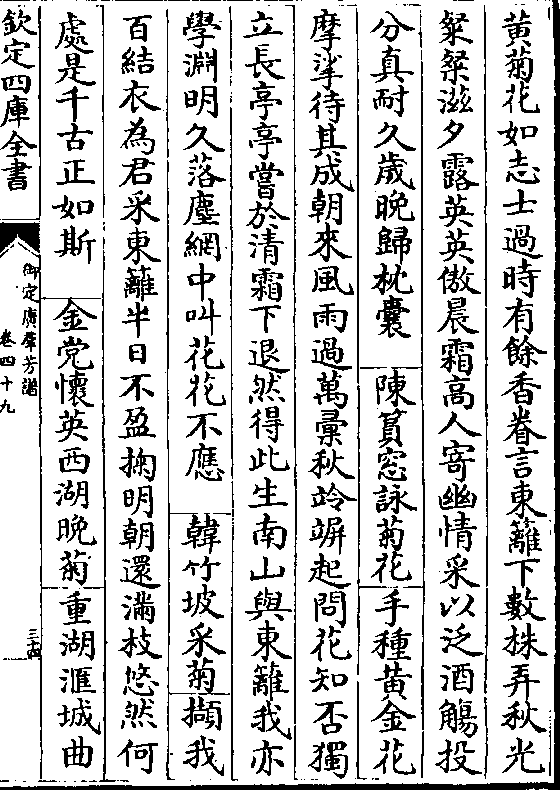 黄菊花如志士過時有餘香眷言東籬下數株弄秋光
粲粲滋夕露英英傲晨霜高人寄幽情采以泛酒觴投
分真耐久歲晚歸枕囊 陳篔窓詠菊花 手種黃金花
摩挲待其成朝來風雨過萬彚秋竛竮起問花知否獨
立長亭亭嘗於清霜下退然得此生南山與東籬我亦
學淵明久落塵網中叫花花不應 韓竹坡采菊 擷我
百結衣為君采東籬半日不盈掬明朝還滿枝悠然何
處是千古正如斯 金党懷英西湖晚菊 重湖滙城曲
欽定四庫全書
御定廣羣芳譜
卷四十九
三十四